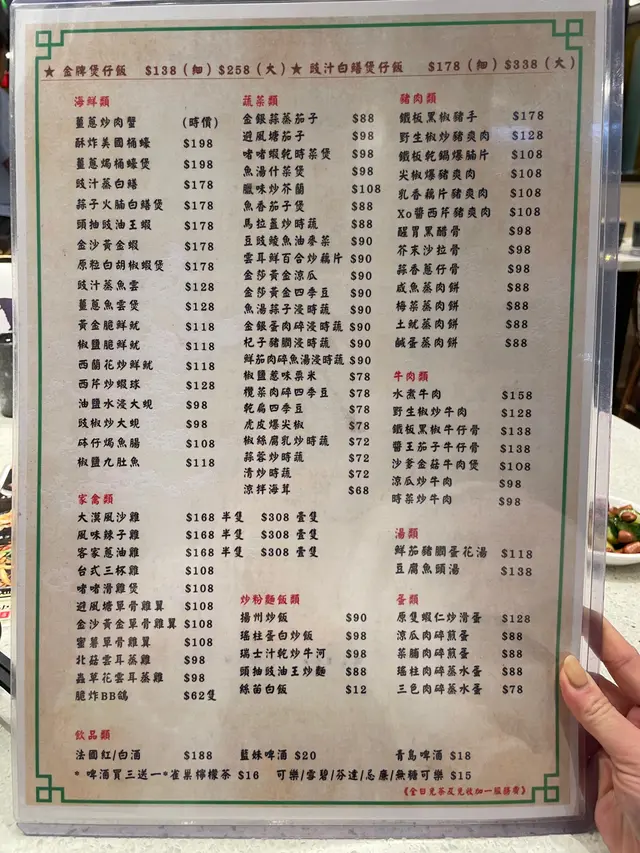 ★ 金牌煲仔飯 $138（細）$258（大）★ 豉汁白鱔煲仔飯 $178（細）$338（大）
海鮮類
薑蔥炒肉蟹 (時價)
酥炸美國桶蠔 $198
薑蔥焗桶蠔煲 $198
豉汁蒸白鱔 $178
蒜子火腩白鱔煲 $178
頭抽豉油王蝦 $178
金沙黃金蝦 $178
原粒白胡椒蝦煲 $178
豉汁蒸魚雲 $128
薑蔥魚雲煲 $128
黃金脆鮮魷 $118
椒鹽脆鮮魷 $118
西蘭花炒鮮魷 $118
西芹炒蝦球 $128
油鹽水浸大蜆 $98
豉椒炒大蜆 $98
砵仔焗魚腸 $108
椒鹽九肚魚 $118
家禽類
大漠風沙雞 $168 半隻 $308 壹隻
風味辣子雞 $168 半隻 $308 壹隻
客家蔥油雞 $168 半隻 $308 壹隻
台式三杯雞 $108
啫啫滑雞煲 $108
避風塘單骨雞翼 $108
金沙黃金單骨雞翼 $108
蜜薯單骨雞翼 $108
北菇雲耳蒸雞 $98
蟲草花雲耳蒸雞 $98
脆炸BB鴿 $62隻
蔬菜類
金銀蒜蒸茄子 $88
避風塘茄子 $98
啫啫蝦乾時菜煲 $98
魚湯什菜煲 $98
臘味炒芥蘭 $108
魚香茄子煲 $88
馬拉盞炒時蔬 $88
豆豉鯪魚油麥菜 $90
雲耳鮮百合炒藕片 $90
金莎黃金涼瓜 $90
金莎黃金四季豆 $90
魚湯蒜子浸時蔬 $90
金銀蛋肉碎浸時蔬 $90
杞子豬膶浸時蔬 $90
鮮茄肉碎魚湯浸時蔬 $90
椒鹽蔥味粟米 $78
欖菜肉碎四季豆 $78
乾扁四季豆 $78
虎皮爆尖椒 $78
椒絲腐乳炒時蔬 $72
蒜蓉炒時蔬 $72
清炒時蔬 $72
涼拌海茸 $68
炒粉麵飯類
揚州炒飯 $90
瑤柱蛋白炒飯 $98
瑞士汁乾炒牛河 $98
頭抽豉油王炒麵 $88
絲苗白飯 $12
豬肉類
鐵板黑椒豬手 $178
野生椒炒豬爽肉 $128
鐵板乾鍋爆腩片 $108
尖椒爆豬爽肉 $108
乳香藕片豬爽肉 $108
Xo醬西芹豬爽肉 $108
醒胃黑醋骨 $98
芥末沙拉骨 $98
蒜香蔥仔骨 $98
咸魚蒸肉餅 $88
梅菜蒸肉餅 $88
土魷蒸肉餅 $88
鹹蛋蒸肉餅 $88
牛肉類
水煮牛肉 $158
野生椒炒牛肉 $128
鐵板黑椒牛仔骨 $138
醬王茄子牛仔骨 $138
沙爹金菇牛肉煲 $108
涼瓜炒牛肉 $98
時菜炒牛肉 $98
湯類
鮮茄豬膶蛋花湯 $118
豆腐魚頭湯 $138
蛋類
原隻蝦仁炒滑蛋 $128
涼瓜肉碎煎蛋 $88
菜脯肉碎煎蛋 $88
瑤柱肉碎蒸水蛋 $88
三色肉碎蒸水蛋 $78
飲品類
法國紅/白酒 $188 藍妹啤酒 $20 青島啤酒 $18
* 啤酒買三送一*雀巢檸檬茶 $16 可樂/雪碧/芬達/忌廉/無糖可樂 $15
《全日免茶芥免收加一服務費》